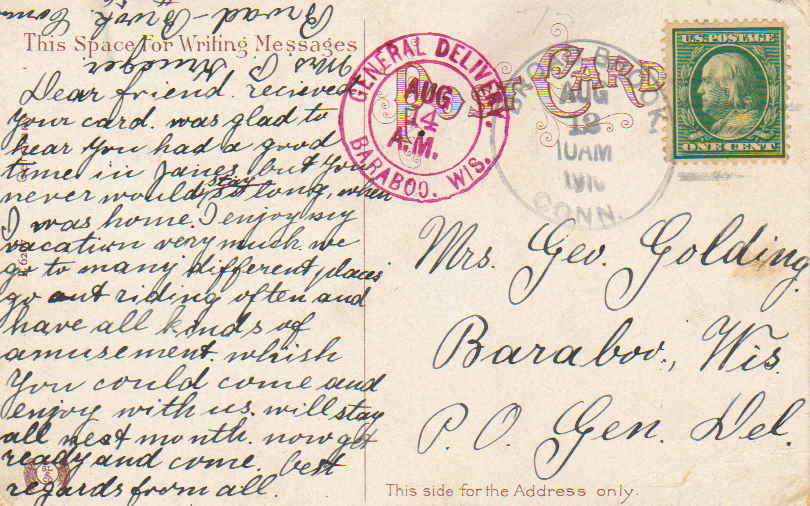 This Space for Writing Messages
Dear friend. recieved
your card. was glad to
hear you had a good
time in Janes, but you
never would stay
long, when
I was home. I enjoy my
vacation very much. we
go to many different places
go out riding often and
have all kinds of
amusement. whish
you could come and
enjoy with us. will stay
all next month. now get
ready and come. best
regards from all.
Mrs C. Krueger
Broad-Brook Conn
GENERAL DELIVERY.
AUG
14
A.M.
BARABOO. WIS.
POST CARD
BROAD BROOK
AUG
12
10AM
1910
CONN.
U.S. POSTAGE
ONE CENT
Mrs. Geo. Golding,
Baraboo, Wis
P. O. Gen. Del.
This side for the Address only.